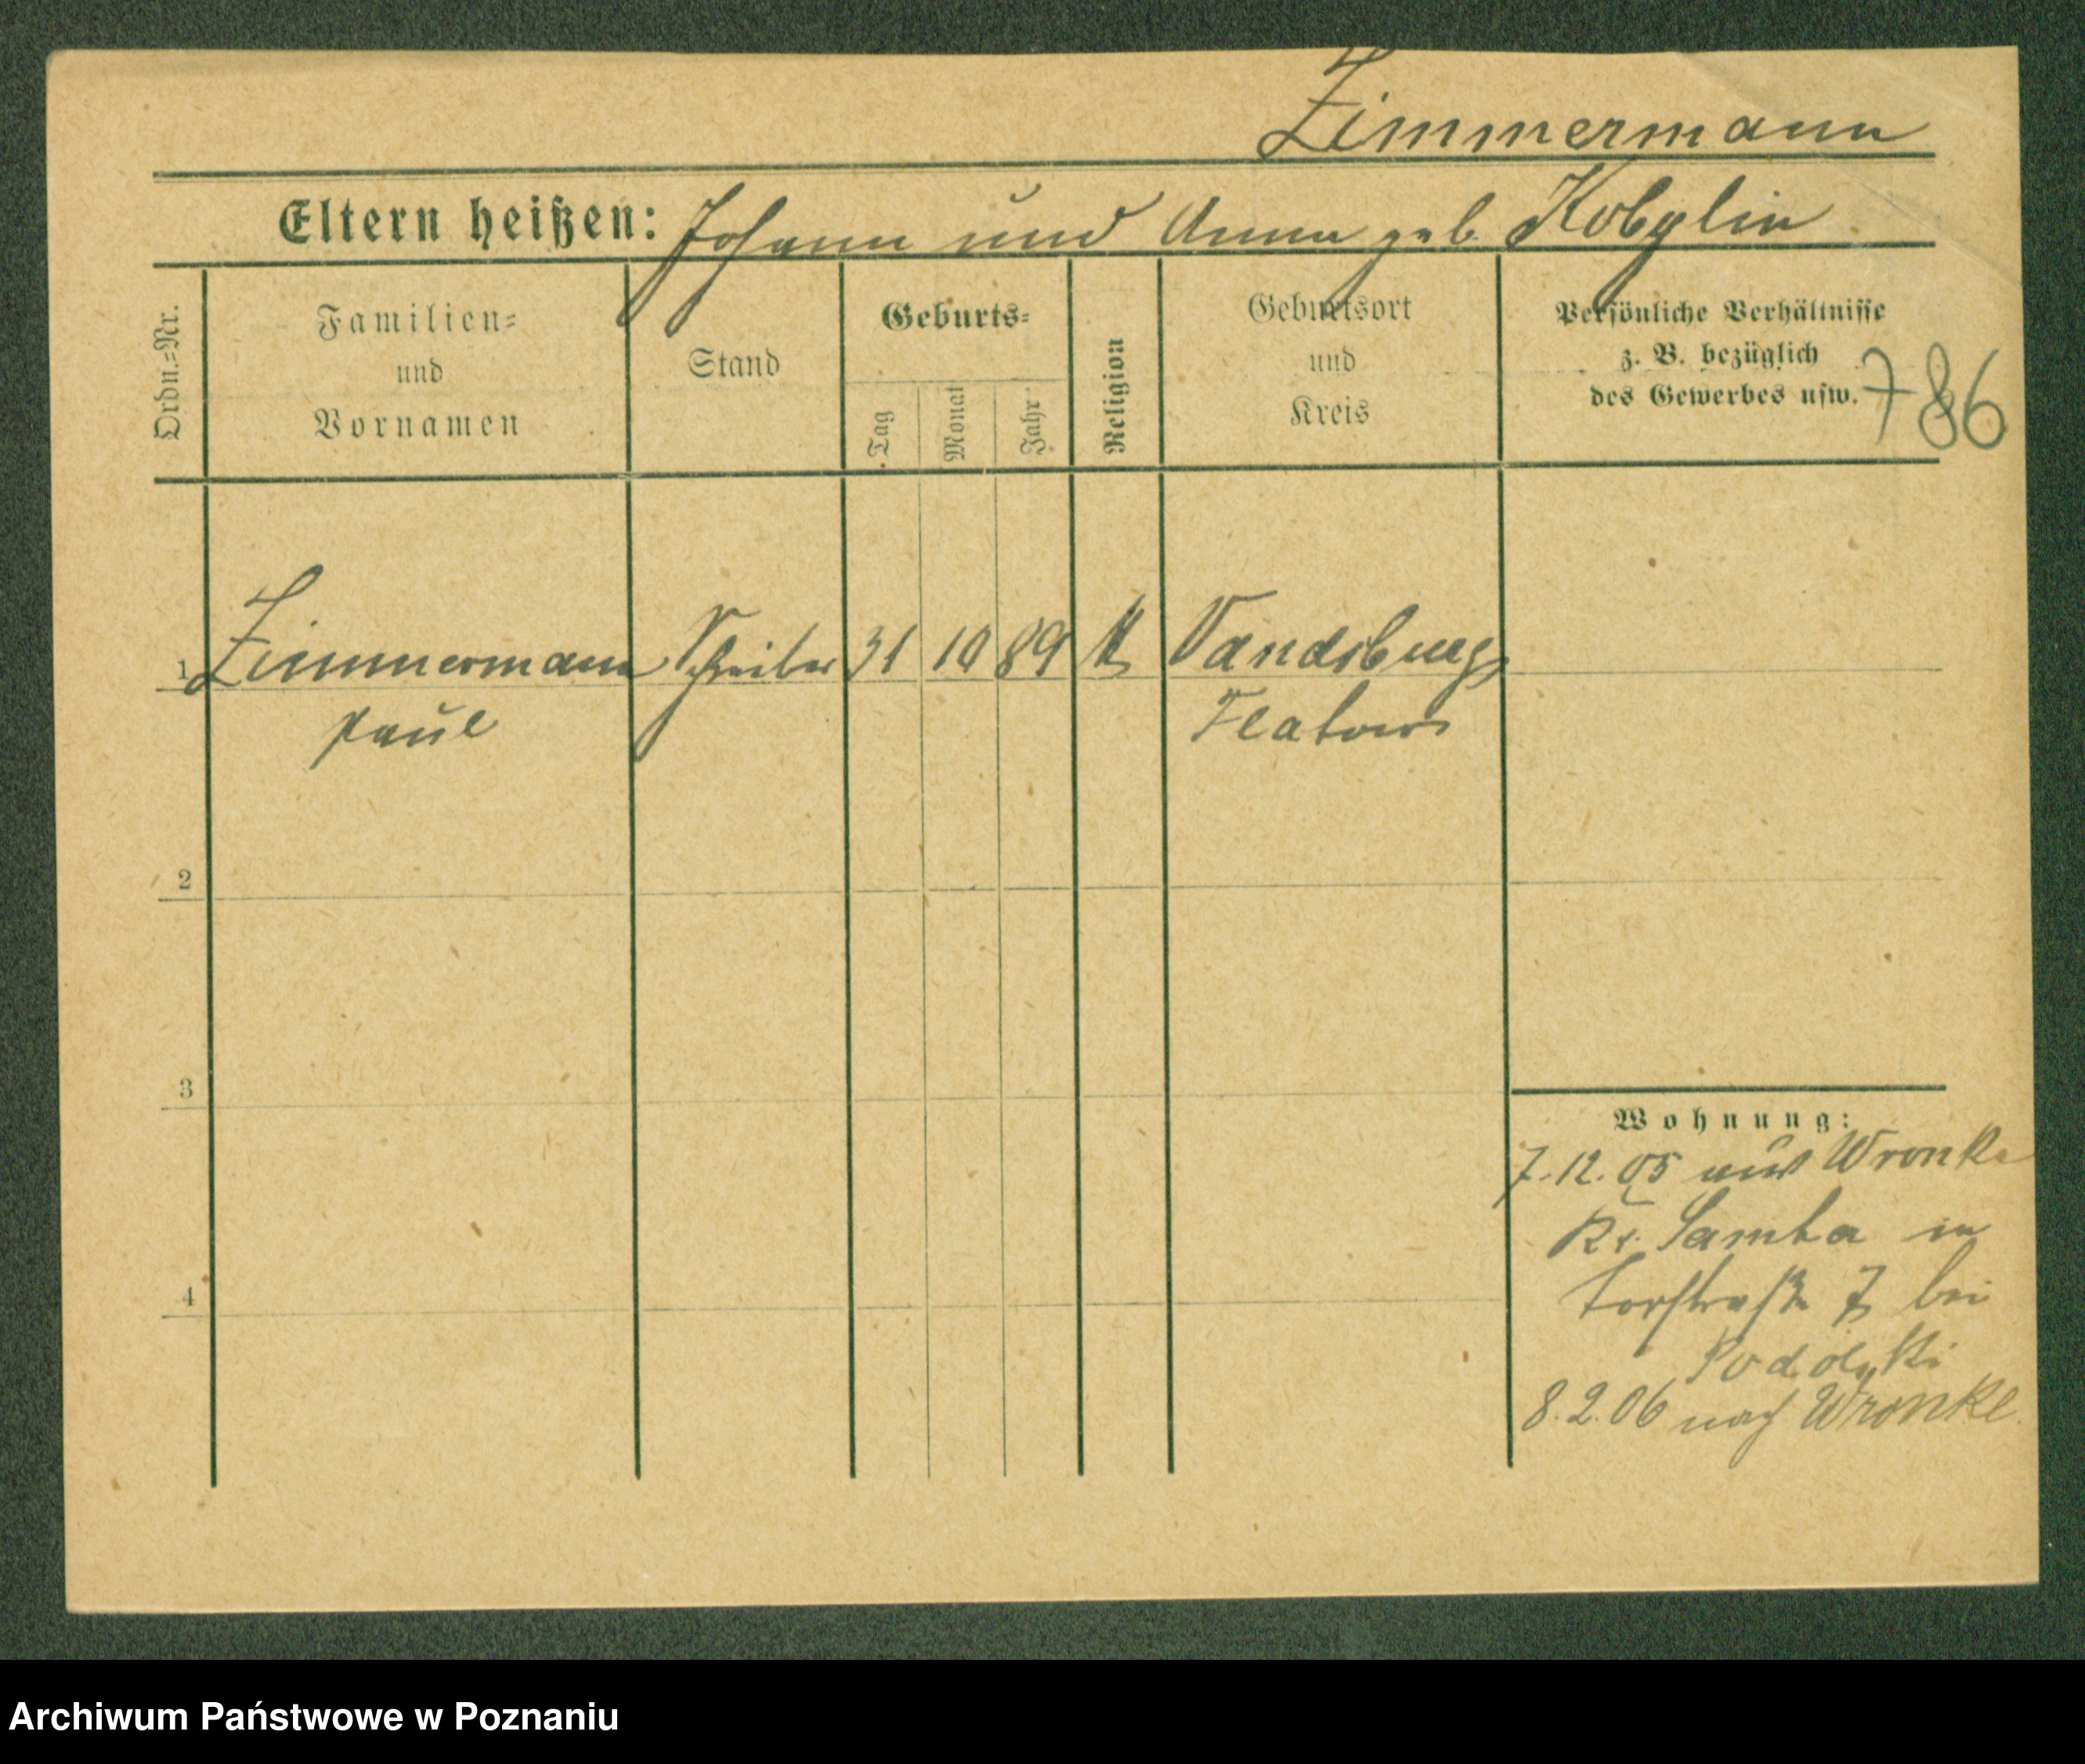 Zimmermann
Eltern heißen: Johann und Anna geb. Kobylin
Ordn.=Nr.
Familien=
und
Vornamen
Stand
Geburts=
Tag
Monat
Jahr
Religion
Geburtsort
und
Kreis
Persönliche Verhältnisse
z. B. bezüglich
des Gewerbes usw.
786
1 Zimmermann Schreiber 31 10 89 K Vandsburg
Paul Flatow
2
3
4
Wohnung:
7.12.05 aus Wronke
Kr. Samter in
Torstraße 7 bei
Podolski
8.2.06 nach Wronke.
Archiwum Państwowe w Poznaniu